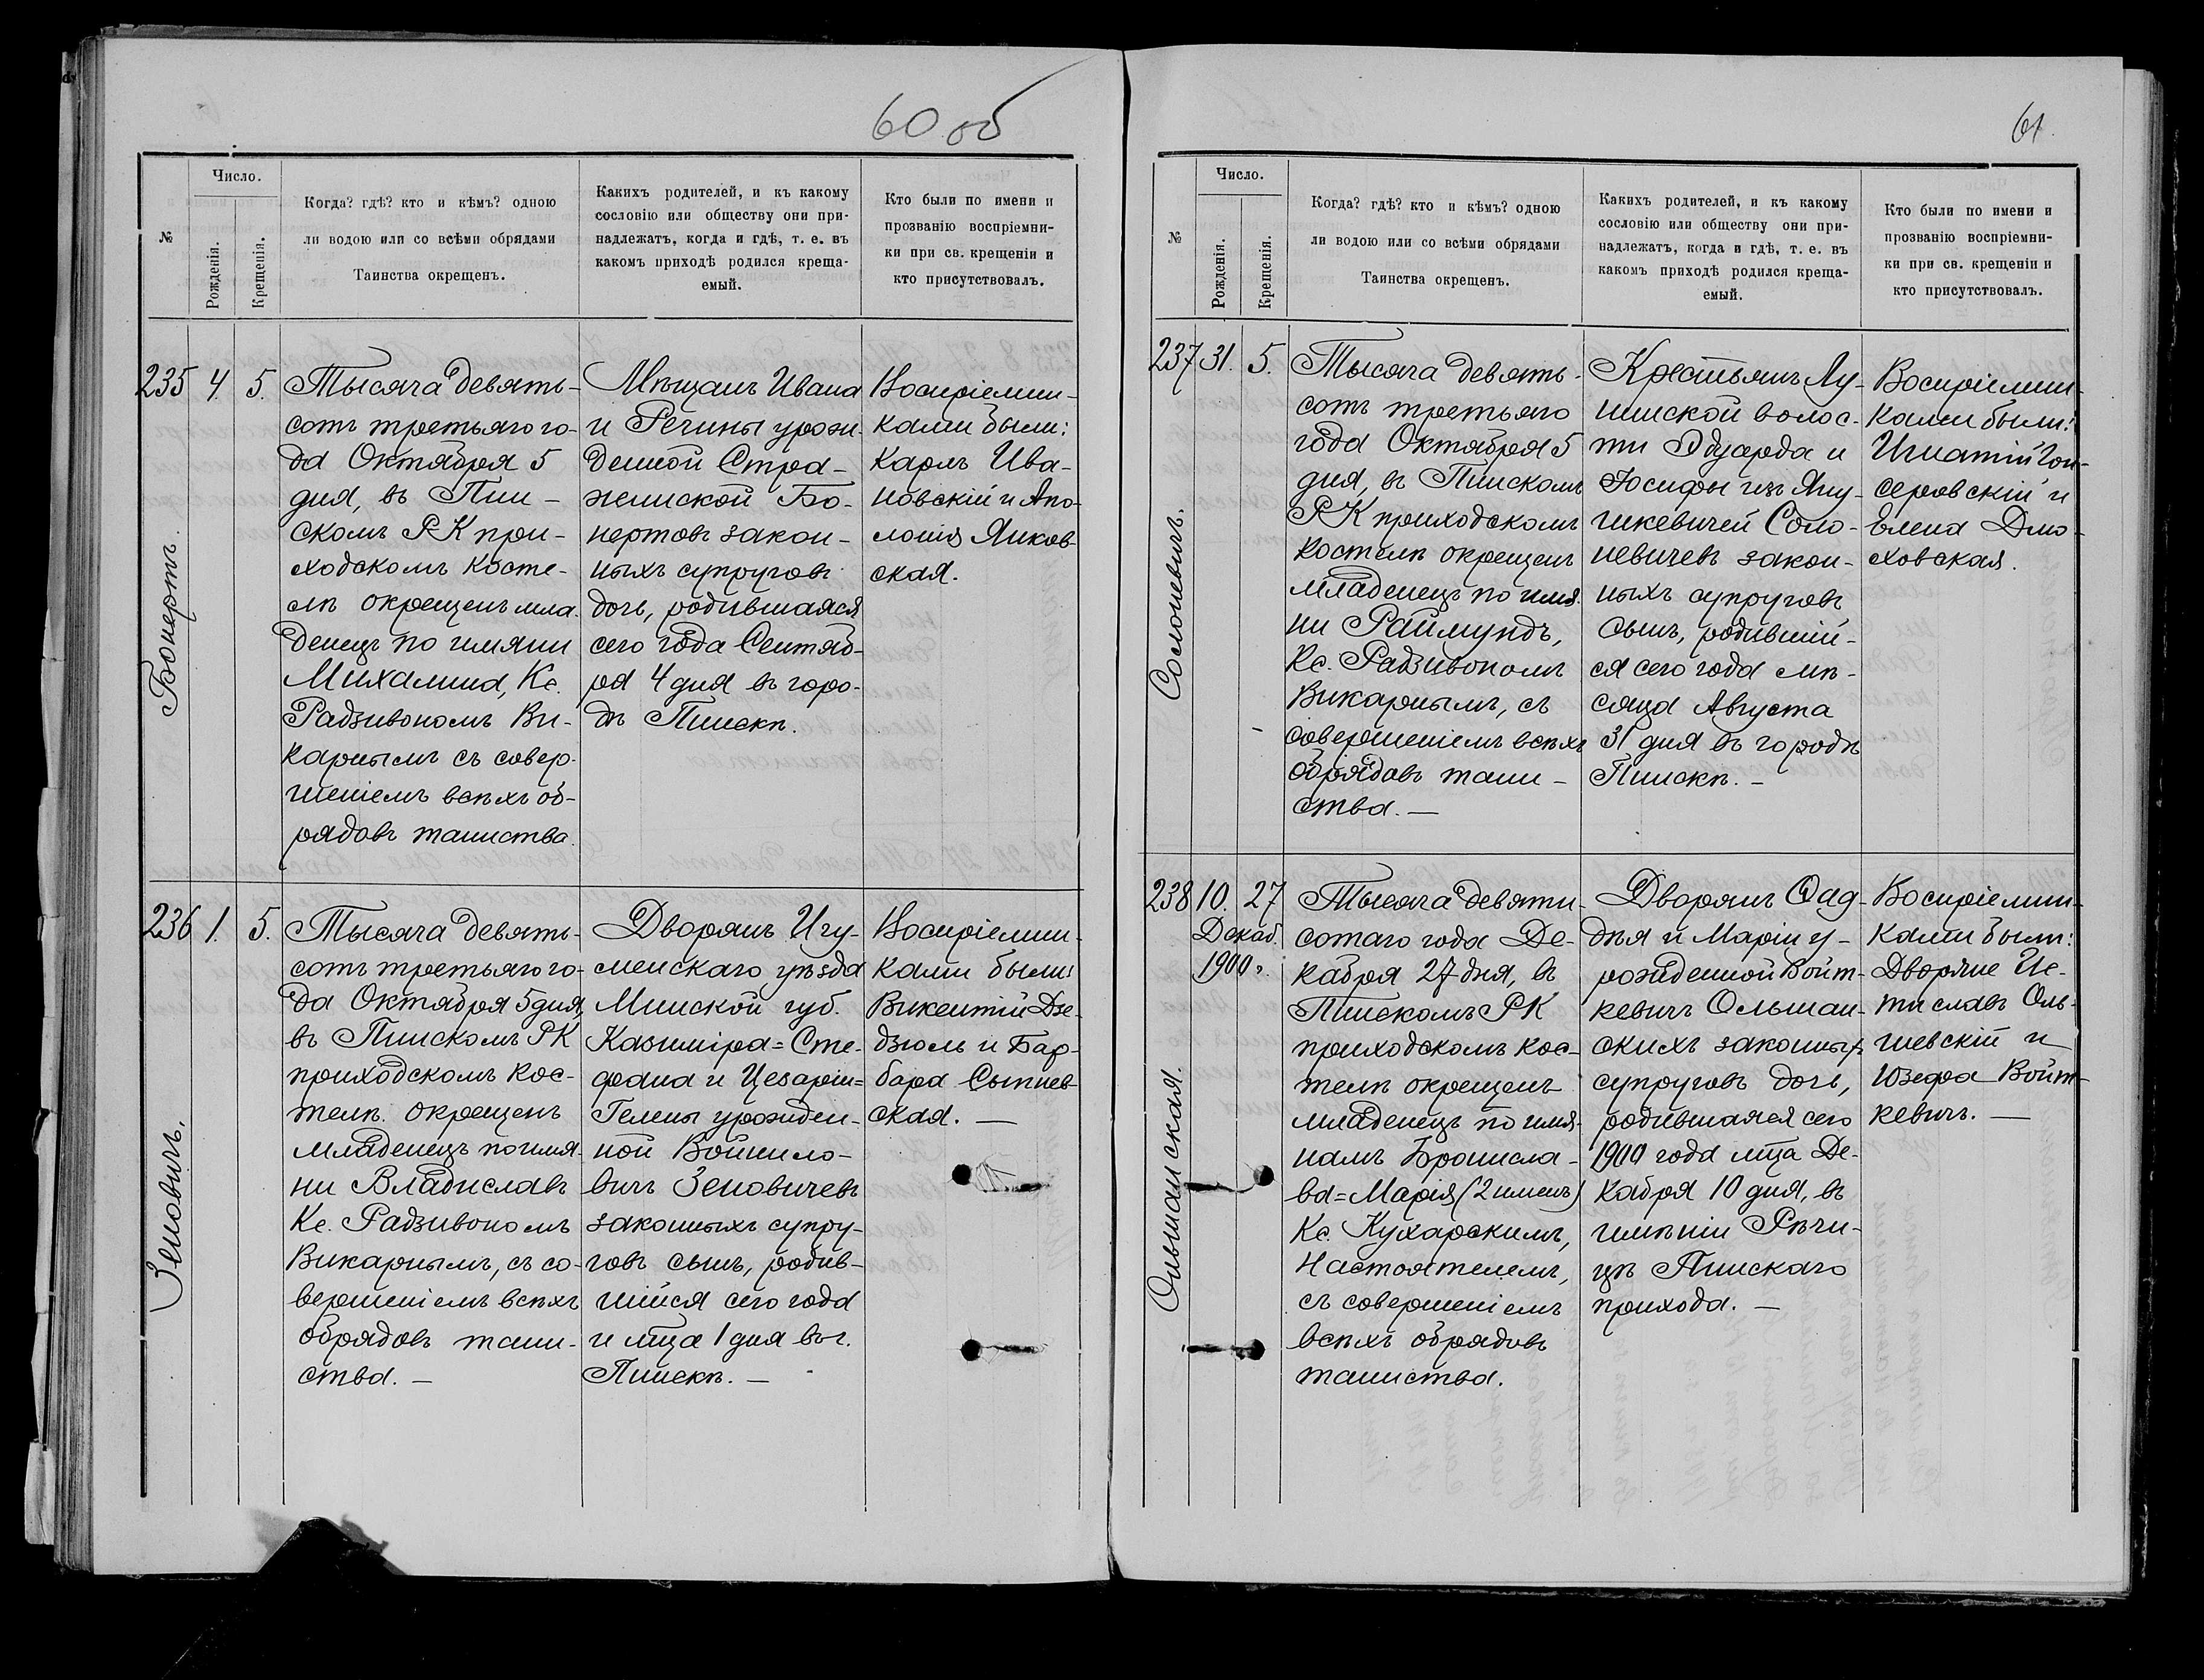 60 об
№
Число.
Рожденія.
Крещенія.
Когда? гдѣ? кто и кѣмъ? одною
ли водою или со всѣми обрядами
Таинства окрещенъ.
Какихъ родителей, и къ какому
сословію или обществу они при-
надлежатъ, когда и гдѣ, т. е. въ
какомъ приходѣ родился креща-
емый.
Кто были по имени и
прозванію воспріемни-
ки при св. крещеніи и
кто присутствовалъ.
235 4. 5.
Бонертъ.
Тысяча девять-
сотъ третьяго го-
да Октября 5
дня, въ Пин-
скомъ РК при-
ходскомъ косте-
лѣ окрещенъ мла-
денецъ по имяни
Михалина, Кс.
Радзивономъ Ви-
карнымъ съ совер-
шеніемъ всѣхъ об-
рядовъ таинства.
Мѣщанъ Ивана
и Регины урож-
денной Стра-
жинской Бо-
нертовъ закон-
ныхъ супруговъ
дочь, родившаяся
сего года Сентяб-
ря 4 дня въ горо-
дѣ Пинскѣ.
Воспріемни-
ками были:
Карлъ Ива-
новскій и Апо-
лонія Янков-
ская.
236 1. 5.
Зеновичъ.
Тысяча девять-
сотъ третьяго го-
да Октября 5 дня,
въ Пинскомъ РК
приходскомъ кос-
телѣ окрещенъ
младенецъ по имя-
ни Владиславъ
Кс. Радзивономъ
Викарнымъ, съ со-
вершеніемъ всѣхъ
обрядовъ таин-
ства. —
Дворянъ Игу-
менскаго уѣзда
Минской губ.
Казиміра=Сте-
фана и Цезаріи=
Гелены урожден-
ной Войнило-
вичъ Зеновичевъ
законныхъ супру-
говъ сынъ, родив-
шійся сего года
и мца 1 дня въ г.
Пинскѣ. —
Воспріемни-
ками были:
Викентій Дзе-
дзюль и Бар-
бара Сыпнев-
ская. —
61.
№
Число.
Рожденія.
Крещенія.
Когда? гдѣ? кто и кѣмъ? одною
ли водою или со всѣми обрядами
Таинства окрещенъ.
Какихъ родителей, и къ какому
сословію или обществу они при-
надлежатъ, когда и гдѣ, т. е. въ
какомъ приходѣ родился креща-
емый.
Кто были по имени и
прозванію воспріемни-
ки при св. крещеніи и
кто присутствовалъ.
237 31. 5.
Солоневичъ.
Тысяча девять-
сотъ третьяго
года Октября 5
дня, въ Пинскомъ
РК приходскомъ
костелѣ окрещенъ
младенецъ по имя-
ни Раймундъ,
Кс. Радзивономъ
Викарнымъ, съ
совершеніемъ всѣхъ
обрядовъ таин-
ства. —
Крестьянъ Лу-
нинской волос-
ти Эдуарда и
Іосифы изъ Яну-
шкевичей Соло-
невичевъ закон-
ныхъ супруговъ
сынъ, родившій-
ся сего года мѣ-
сяца Августа
31 дня въ городѣ
Пинскѣ. —
Воспріемни-
ками были:
Игнатій Гон-
серовскій и
Елена Дмо-
ховская.
238 10. 27
Декаб.
1900 г.
Ольшанская.
Тысяча девяти-
сотаго года Де-
кабря 27 дня, въ
Пинскомъ РК
приходскомъ кос-
телѣ окрещенъ
младенецъ по имя-
намъ Бронисла-
ва=Марія (2 именъ)
Кс. Кухарскимъ,
Настоятелемъ,
съ совершеніемъ
всѣхъ обрядовъ
таинства.
Дворянъ Фад-
дѣя и Маріи у-
рожденной Войт-
кевичъ Ольшан-
скихъ законныхъ
супруговъ дочь,
родившаяся сего
1900 года мца Де-
кабря 10 дня, въ
имѣніи Рѣчи-
цѣ Пинскаго
прихода. —
Воспріемни-
ками были:
Дворяне
Оль-
шевскій и
Юзефа Войт-
кевичъ. —